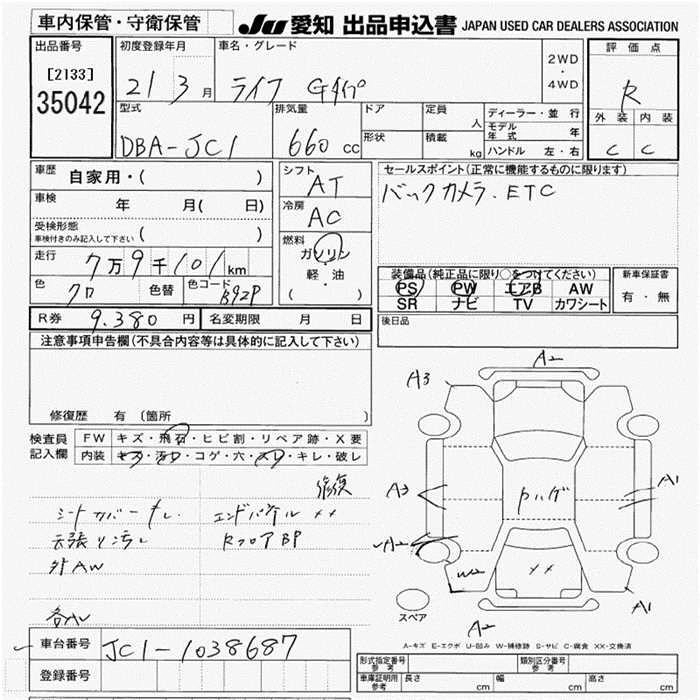 車内保管・守衛保管
JU 愛知 出品申込書 JAPAN USED CAR DEALERS ASSOCIATION
出品番号
[2133]
35042
初度登録年月
21 3 月
車名・グレード
ライフ Gタイプ
2WD
・
4WD
評価点
R
外装 内装
C C
型式
DBA-JC1
排気量
660 cc
ドア
形状
定員
人
積載
kg
ディーラー・並行
モデル年式 年
ハンドル 左・右
車歴
自家用・( )
車検
年 月( 日)
受検形態
車検付きのみ記入して下さい ( )
走行
7万9千101 km
色
クロ
色替
色コード
B92P
シフト
AT
冷房
AC
燃料
ガソリン
・
軽・油
( )
セールスポイント(正常に機能するものに限ります)
バックカメラ. ETC
装備品(純正品に限り○をつけてください)
PS PW エアB AW
SR ナビ TV カワシート
新車保証書
有・無
R券 9.380 円
名変期限 月 日
後日品
注意事項申告欄(不具合内容等は具体的に記入して下さい)
修復歴 有 〔箇所 〕
検査員
記入欄
FW キズ・飛石・ヒビ割・リペア跡・X要
内装 キズ・汚レ・コゲ・穴・スレ・キレ・破レ
修復
シートカバーナシ エンドパネル ××
天張り汚レ RフロアBP
外AW
A2
A3
A3
A1
A2
W2
××
A1
A2
スペア
A-キズ E-エクボ U-凹み W-補修跡 S-サビ C-腐食 XX-交換済
車台番号
JC1-1038687
登録番号
形式指定番号
参考
類別区分番号
参考
車庫証明用
参考
長さ cm
幅 cm
高さ cm